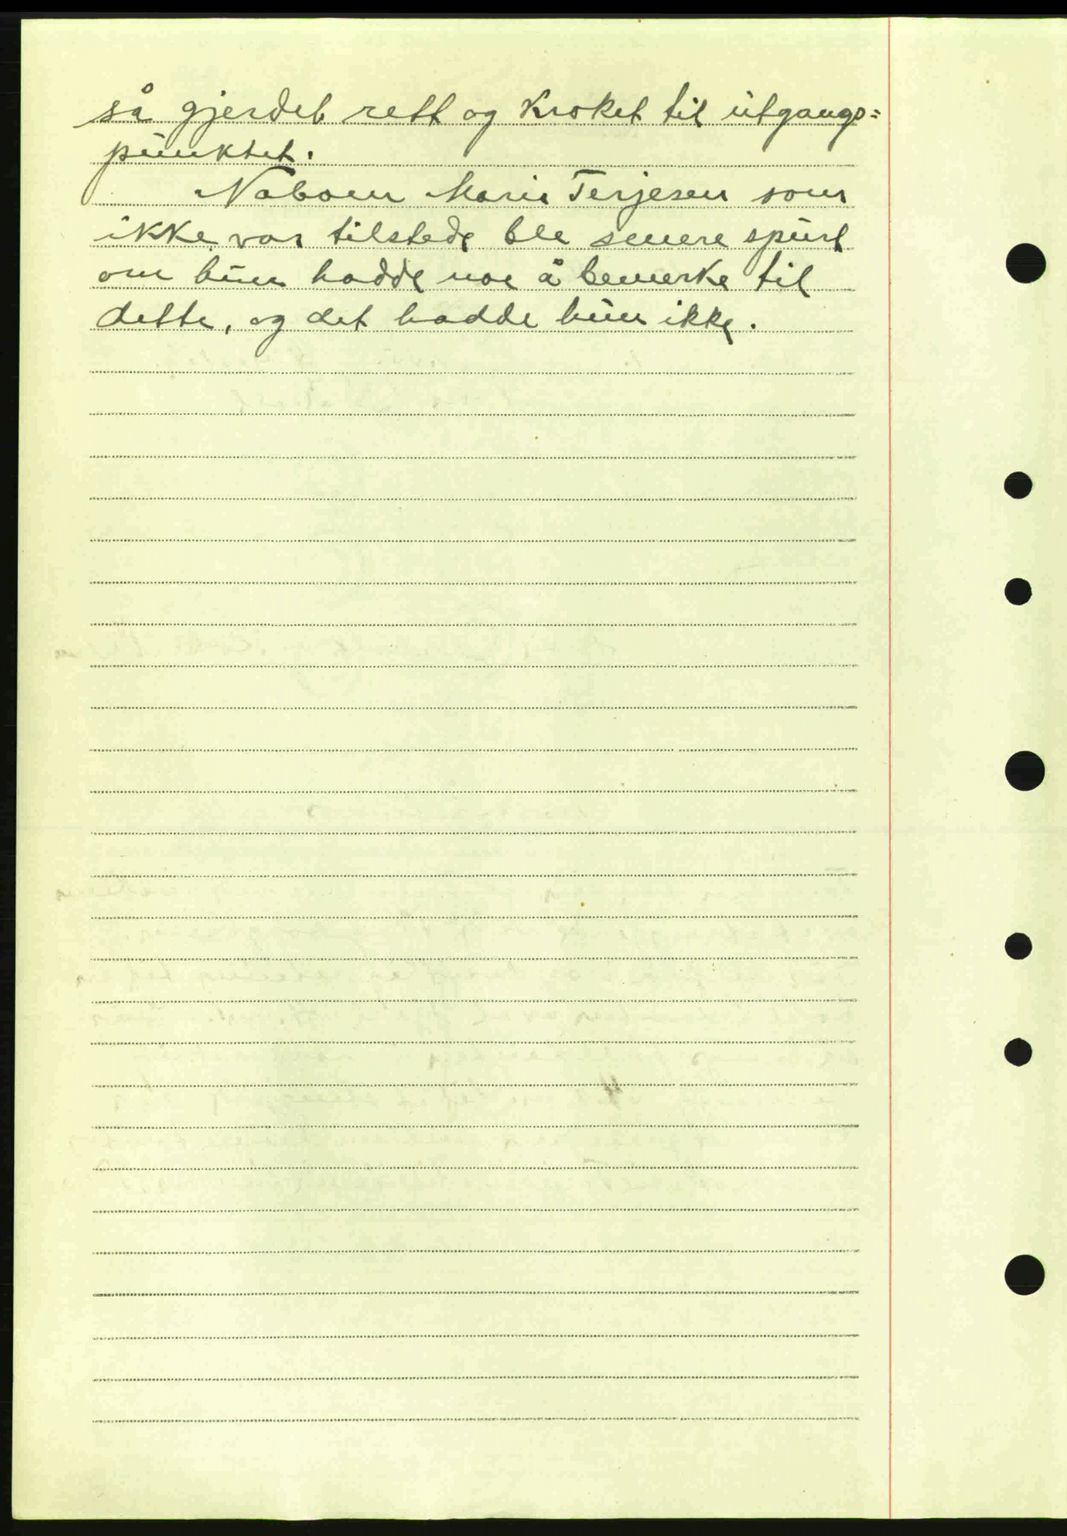 så gjerdet rett og kroket til utgangs=
punktet.
Naboen Marie Terjesen som
ikke var tilstede ble senere spurt
om hun hadde noe å bemerke til
dette, og det hadde hun ikke.